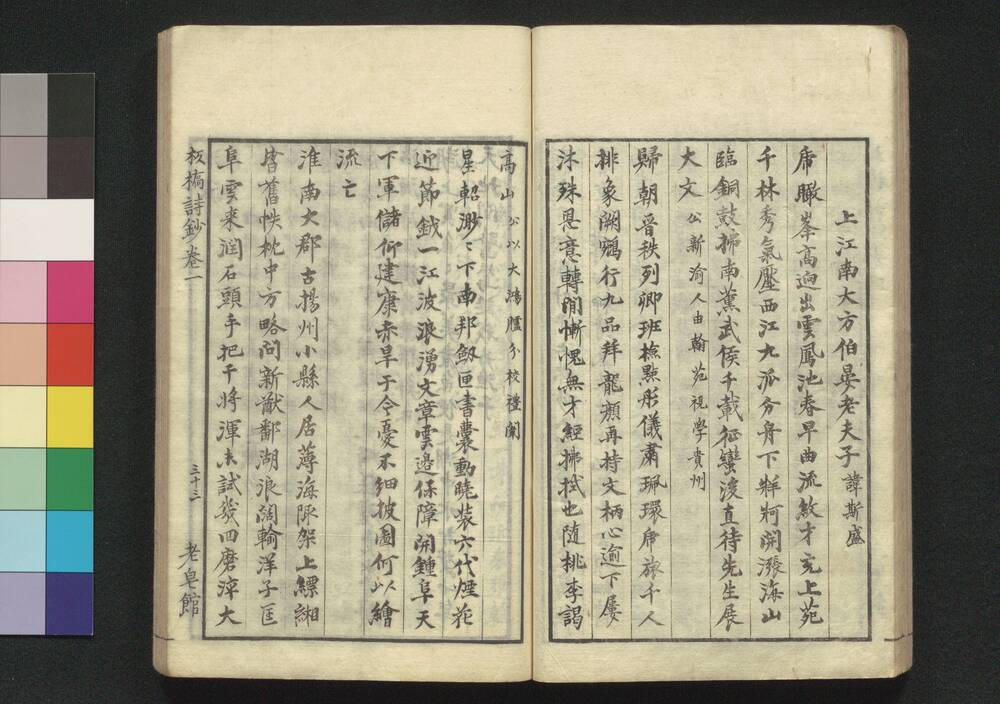 上江南大方伯晏老夫子 諱斯盛
虎瞰峯高迥出雲鳳池春早曲流紋才充上苑
千林秀氣壓西江九派分舟下牂牁開漲海山
臨銅鼓掃南薰武侯千載征蠻後直待先生展
大文 公新渝人由翰苑視學貴州
歸朝晉秩列卿班檢點彤儀肅珮環虎旅千人
排象闕鵷行九品拜龍顏再持文柄心逾下屢
沐殊恩意轉閒慚愧無才經拂拭也随桃李謁
高山 公以大鴻臚分校禮闈
星軺渺〻下南邦劔匣書囊動曉裝六代煙花
近節鉞一江波浪湧文章雲邊保障開鍾阜天
下軍儲仰建康赤旱于今憂不細披圖何以繪
流亡
淮南大郡古揚州小縣人居薄海陬架上縹緗
皆舊帙枕中方略問新猷鄱湖浪闊輸洋子匡
阜雲来潤石頭手把干將渾未試幾回磨淬大
板橋詩鈔卷一 三十三 老皂館